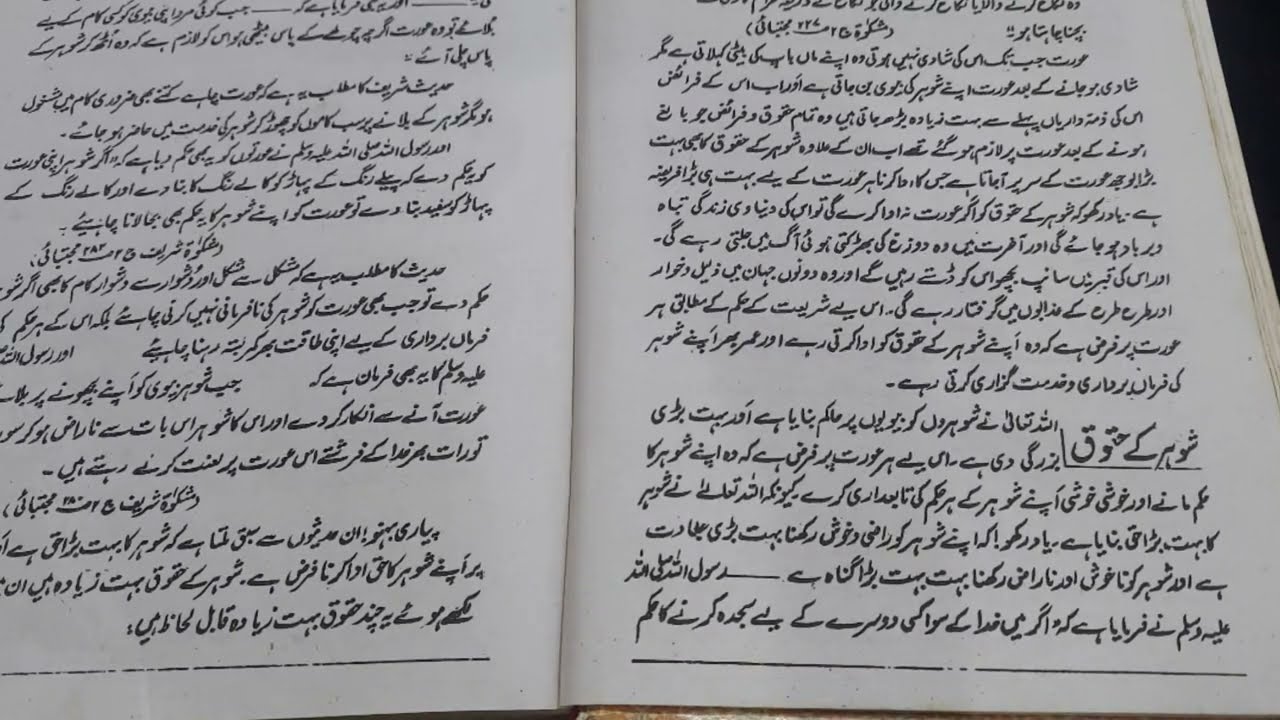 وہ نکاح کرنے والا یا نکاح کرنے والی جو نکاح کے ذریعہ حرام
بچنا چاہتا ہو" (مشکوٰۃ ج ۲ ص ۲۲۷ مجتبائی)
عورت جب تک اس کی شادی نہیں ہوتی وہ اپنے ماں باپ کی بیٹی کہلاتی ہے مگر
شادی ہو جانے کے بعد عورت اپنے شوہر کی بیوی بن جاتی ہے اور اب اس کے فرائض
اس کی ذمہ داریاں پہلے سے بہت زیادہ بڑھ جاتی ہیں وہ تمام حقوق و فرائض جو بالغ
ہونے کے بعد عورت پر لازم ہو گئے تھے اب ان کے علاوہ شوہر کے حقوق کا بھی بہت
بڑا بوجھ عورت کے سر پر آجاتا ہے جس کا ادا کرنا ہر عورت کے لیے بہت ہی بڑا فریضہ
ہے۔ یاد رکھو کہ شوہر کے حقوق کو اگر عورت نہ ادا کرے گی تو اس کی دنیاوی زندگی تباہ
و برباد ہو جائے گی اور آخرت میں وہ دوزخ کی بھڑکتی ہوئی آگ میں جلتی رہے گی۔
اور اس کی قبر میں سانپ بچھو اس کو ڈستے رہیں گے اور وہ دونوں جہان میں ذلیل و خوار
اور طرح طرح کے عذابوں میں گرفتار رہے گی۔ اس لیے شریعت کے حکم کے مطابق ہر
عورت پر فرض ہے کہ وہ اپنے شوہر کے حقوق کو ادا کرتی رہے اور عمر بھر اپنے شوہر
کی فرماں برداری و خدمت گزاری کرتی رہے۔
شوہر کے حقوق
اللہ تعالیٰ نے شوہروں کو بیویوں پر حاکم بنایا ہے اور بہت بڑی
بزرگی دی ہے۔ اس لیے ہر عورت پر فرض ہے کہ وہ اپنے شوہر کا
حکم مانے اور خوشی خوشی اپنے شوہر کے ہر حکم کی تابعداری کرے۔ کیونکہ اللہ تعالیٰ نے شوہر
کا بہت بڑا حق بنایا ہے۔ یاد رکھو! کہ اپنے شوہر کو راضی و خوش رکھنا بہت بڑی عبادت
ہے اور شوہر کو ناخوش اور ناراض رکھنا بہت بہت بڑا گناہ ہے —— رسول اللہ صلی اللہ
علیہ وسلم نے فرمایا ہے کہ "اگر میں خدا کے سوا کسی دوسرے کے لیے سجدہ کرنے کا حکم
—— اور یہ بھی فرمایا ہے کہ —— جب کوئی مرد اپنی بیوی کو کسی کام کے لیے
بلائے تو وہ عورت اگرچہ چولھے کے پاس بیٹھی ہو اس کو لازم ہے کہ وہ اٹھ کر شوہر کے
پاس چلی آئے"
حدیث شریف کا مطلب یہ ہے کہ عورت چاہے کتنے بھی ضروری کام میں مشغول
ہو مگر شوہر کے بلانے پر سب کاموں کو چھوڑ کر شوہر کی خدمت میں حاضر ہو جائے۔
اور رسول اللہ صلی اللہ علیہ وسلم نے عورتوں کو یہ بھی حکم دیا ہے کہ "اگر شوہر اپنی عورت
کو یہ حکم دے کہ پیلے رنگ کے پہاڑ کو کالے رنگ کا بنا دے اور کالے رنگ کے
پہاڑ کو سفید بنا دے تو عورت کو اپنے شوہر کا یہ حکم بھی بجا لانا چاہیئے۔
(مشکوٰۃ شریف ج ۲ ص ۲۸۳ مجتبائی)
حدیث کا مطلب یہ ہے کہ مشکل سے مشکل اور دشوار سے دشوار کام کا بھی اگر
حکم دے تو جب بھی عورت کو شوہر کی نافرمانی نہیں کرنی چاہئے بلکہ اس کے ہر حکم کی
فرماں برداری کے لیے اپنی طاقت بھر کمربستہ رہنا چاہیئے اور رسول اللہ
علیہ وسلم کا یہ بھی فرمان ہے کہ جب شوہر بیوی کو اپنے بچھونے پر بلائے
عورت آنے سے انکار کر دے اور اس کا شوہر اس بات سے ناراض ہو کر سو
تو رات بھر خدا کے فرشتے اس عورت پر لعنت کرتے رہتے ہیں۔
(مشکوٰۃ شریف ج ۲ ص ۲۸۰ مجتبائی)
پیاری بہنو! ان حدیثوں سے سبق ملتا ہے کہ شوہر کا بہت بڑا حق ہے
پر اپنے شوہر کا حق ادا کرنا فرض ہے۔ شوہر کے حقوق بہت زیادہ ہیں ان میں
لکھے ہوئے یہ چند حقوق بہت زیادہ قابل لحاظ ہیں: